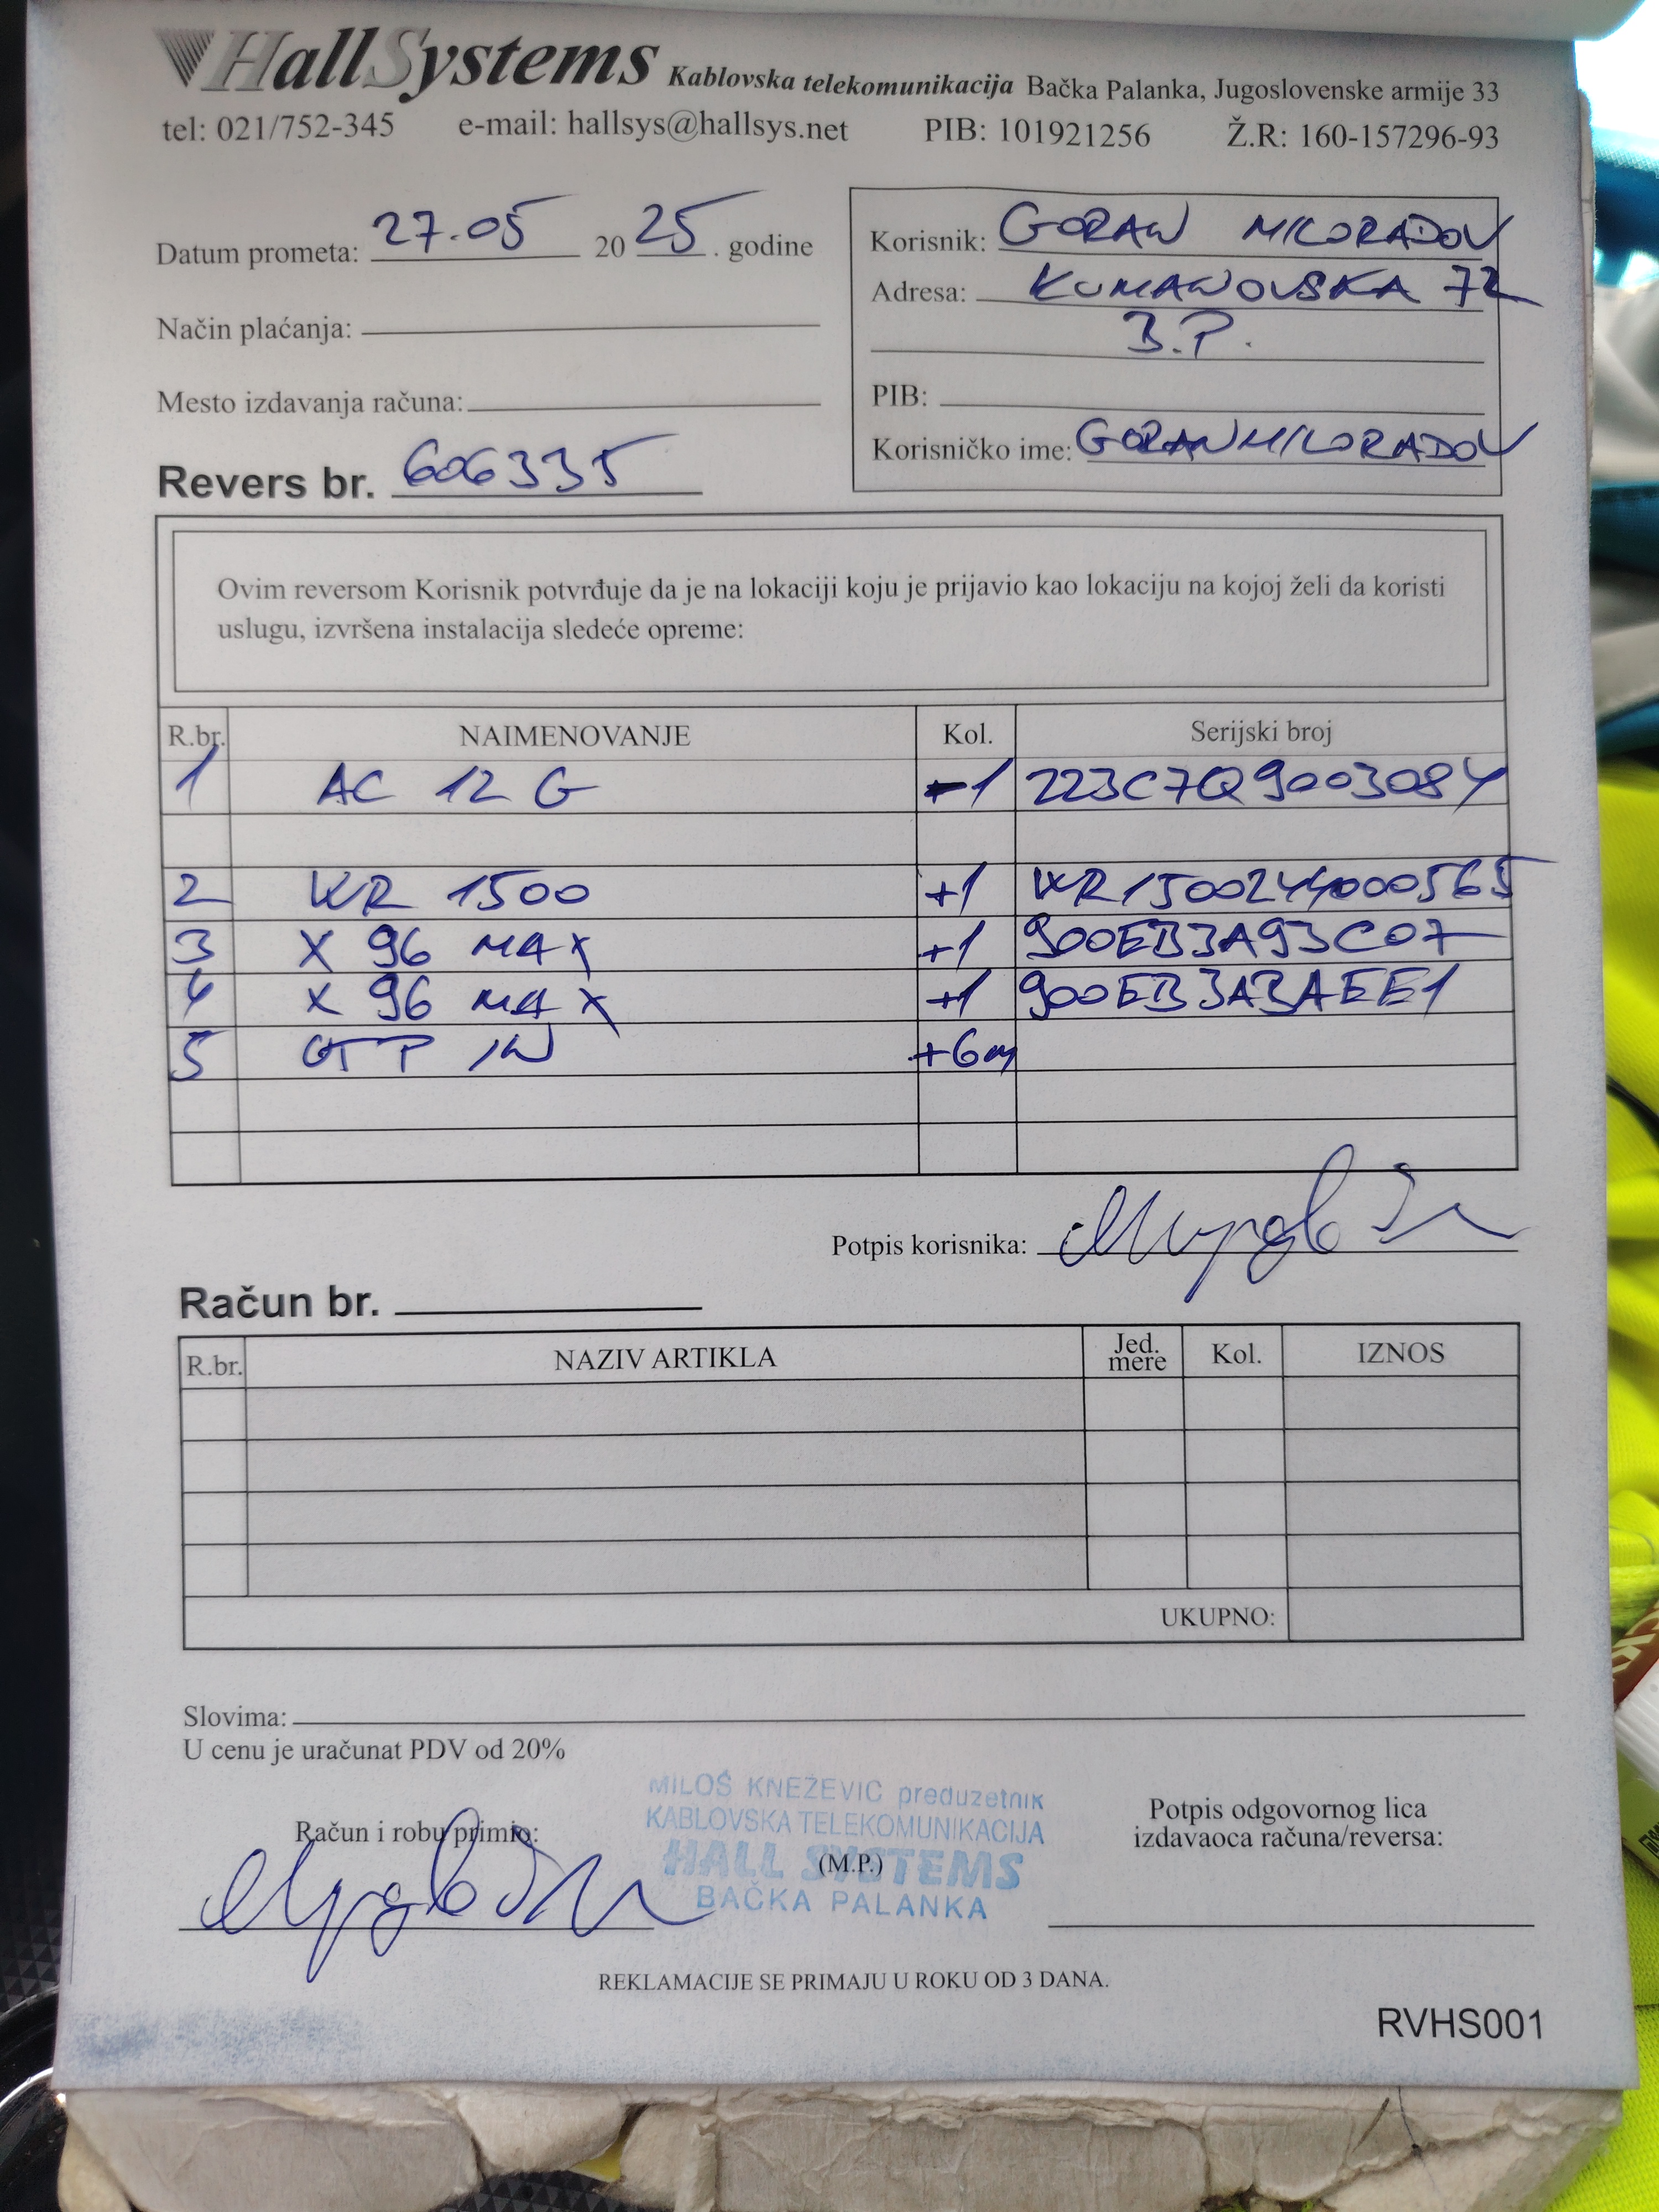 HallSystems Kablovska telekomunikacija Bačka Palanka, Jugoslovenske armije 33
tel: 021/752-345 e-mail: hallsys@hallsys.net PIB: 101921256 Ž.R: 160-157296-93
Datum prometa: 27.05 2025. godine
Korisnik: GORAN MILORADOV
Adresa: KUMANOVSKA 72
B.P.
Način plaćanja:
Mesto izdavanja računa:
PIB:
Korisničko ime: GORANMILORADOV
Revers br. 606335
Ovim reversom Korisnik potvrđuje da je na lokaciji koju je prijavio kao lokaciju na kojoj želi da koristi
uslugu, izvršena instalacija sledeće opreme:
R.br. NAIMENOVANJE Kol. Serijski broj
1 AC 12 G -1 223C7Q9003084
2 WR 1500 +1 WR1500244000565
3 X 96 MAX +1 900EB3A93C07
4 X 96 MAX +1 900EB3A3AEE1
5 UTP IN +6m
Potpis korisnika:
Račun br.
R.br. NAZIV ARTIKLA Jed. mere Kol. IZNOS
UKUPNO:
Slovima:
U cenu je uračunat PDV od 20%
MILOŠ KNEŽEVIĆ preduzetnik
KABLOVSKA TELEKOMUNIKACIJA
HALL SYSTEMS
BAČKA PALANKA
Račun i robu primio:
(M.P.)
Potpis odgovornog lica
izdavaoca računa/reversa:
REKLAMACIJE SE PRIMAJU U ROKU OD 3 DANA.
RVHS001